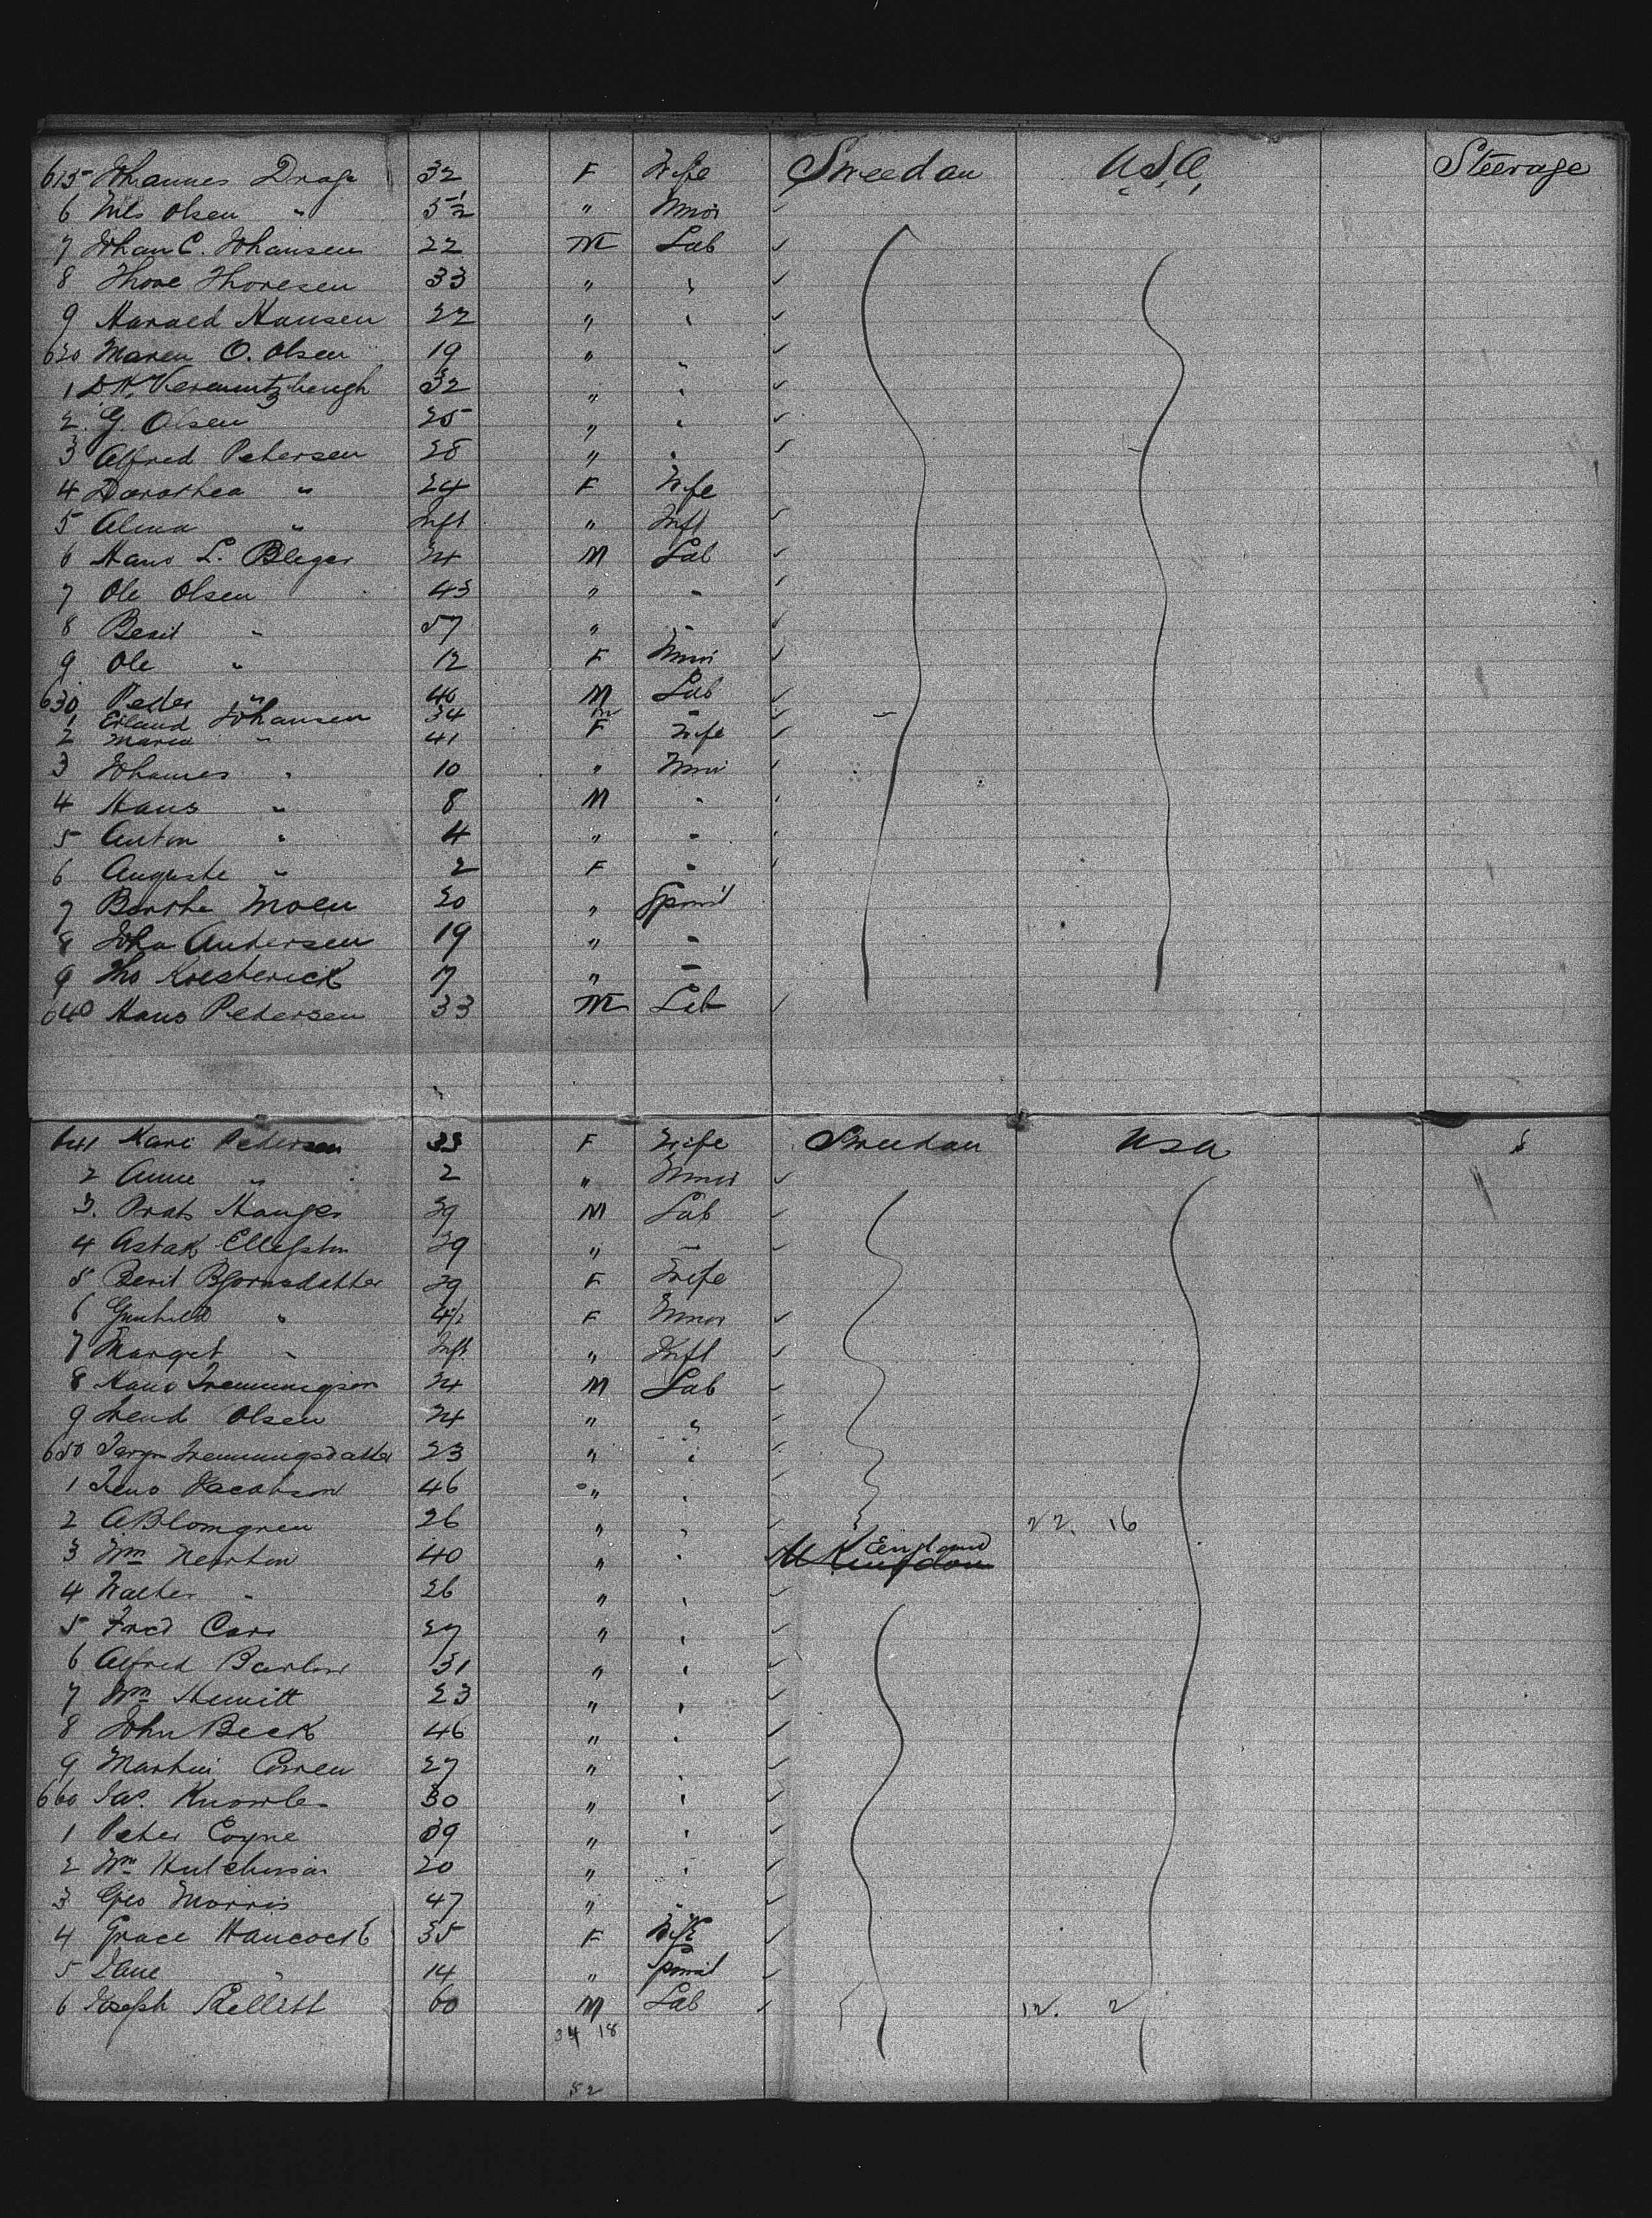 615 Johannes Drage 32 F Wife Sweedan U.S.A. Steerage
6 Nils Olsen " 5½ " Minor
7 Johan C. Johansen 22 M Lab
8 Thore Thoresen 33 " "
9 Harald Hansen 22 " "
620 Maren O. Olsen 19 " "
1 32 " "
2 G. Olsen 25 " "
3 Alfred Petersen 28 " "
4 Dorothea " 24 F Wife
5 Alma " Inft " Inft
6 Hans L. 24 M Lab
7 Ole Olsen 43 " "
8 Berit " 57 " "
9 Ole " 12 F Minor
630 Peder " 40 M Lab
1 Erland Johansen 34 m "
2 Maria " 41 F Wife
3 Johannes " 10 " Minor
4 Hans " 8 M "
5 Anton " 4 " "
6 Auguste " 2 F "
7 Berthe Moen 20 " Spinst
8 Andersen 19 " "
9 "  "
640 Hans Petersen 33 M Lab
641 Kari Petersen 33 F Wife Sweedan USA
2 Anne " 2 " Minor
3. Hanger 39 M Lab
4 39 " "
5 Berit Bjornsdatter 39 F Wife
6 Gunhild " 4½ F Minor
7 Marget " Inft " Inft
8 Hans 24 M Lab
9 Olsen 24 " "
650 23 " "
1 Jens Jacobson 46 " "
2 A Blomgren 26 " " 22. 16
3 Wm Newton 40 " " England
4 Walter " 26 " "
5 Fred Carr 27 " "
6 Alfred Barlow 31 " "
7 Wm Hewitt 23 " "
8 John Beck 46 " "
9 Martin 27 " "
660 Jas. Knowles 30 " "
1 Peter Coyne 39 " "
2 Wm Hutchinson 20 " "
3 Geo Morris 47 " "
4 Grace Hancock 35 F Wife
5 Jane " 14 " Spinst
6 Joseph 60 M Lab 12. 2
34 18
52